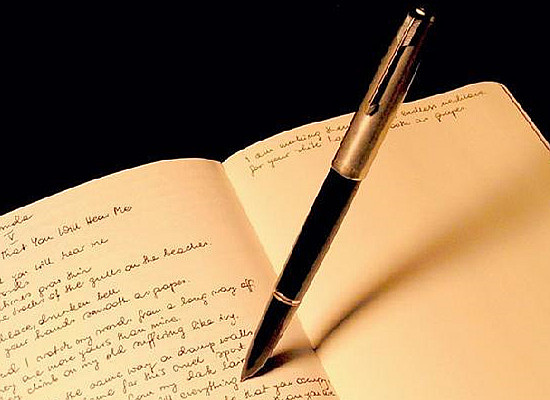 V
That You Will Hear Me
you will hear me
times grow thin
tracks of the gulls on the beaches.
drunken bell
your hands smooth as grapes.
I watch my words from a long way off.
are more yours than mine.
climb on my old suffering like ivy.
the same way damp walls
for this cruel sport
from my dark lair
everything
that you occupy
than you are
I am making endless necklace
for your white as grapes.